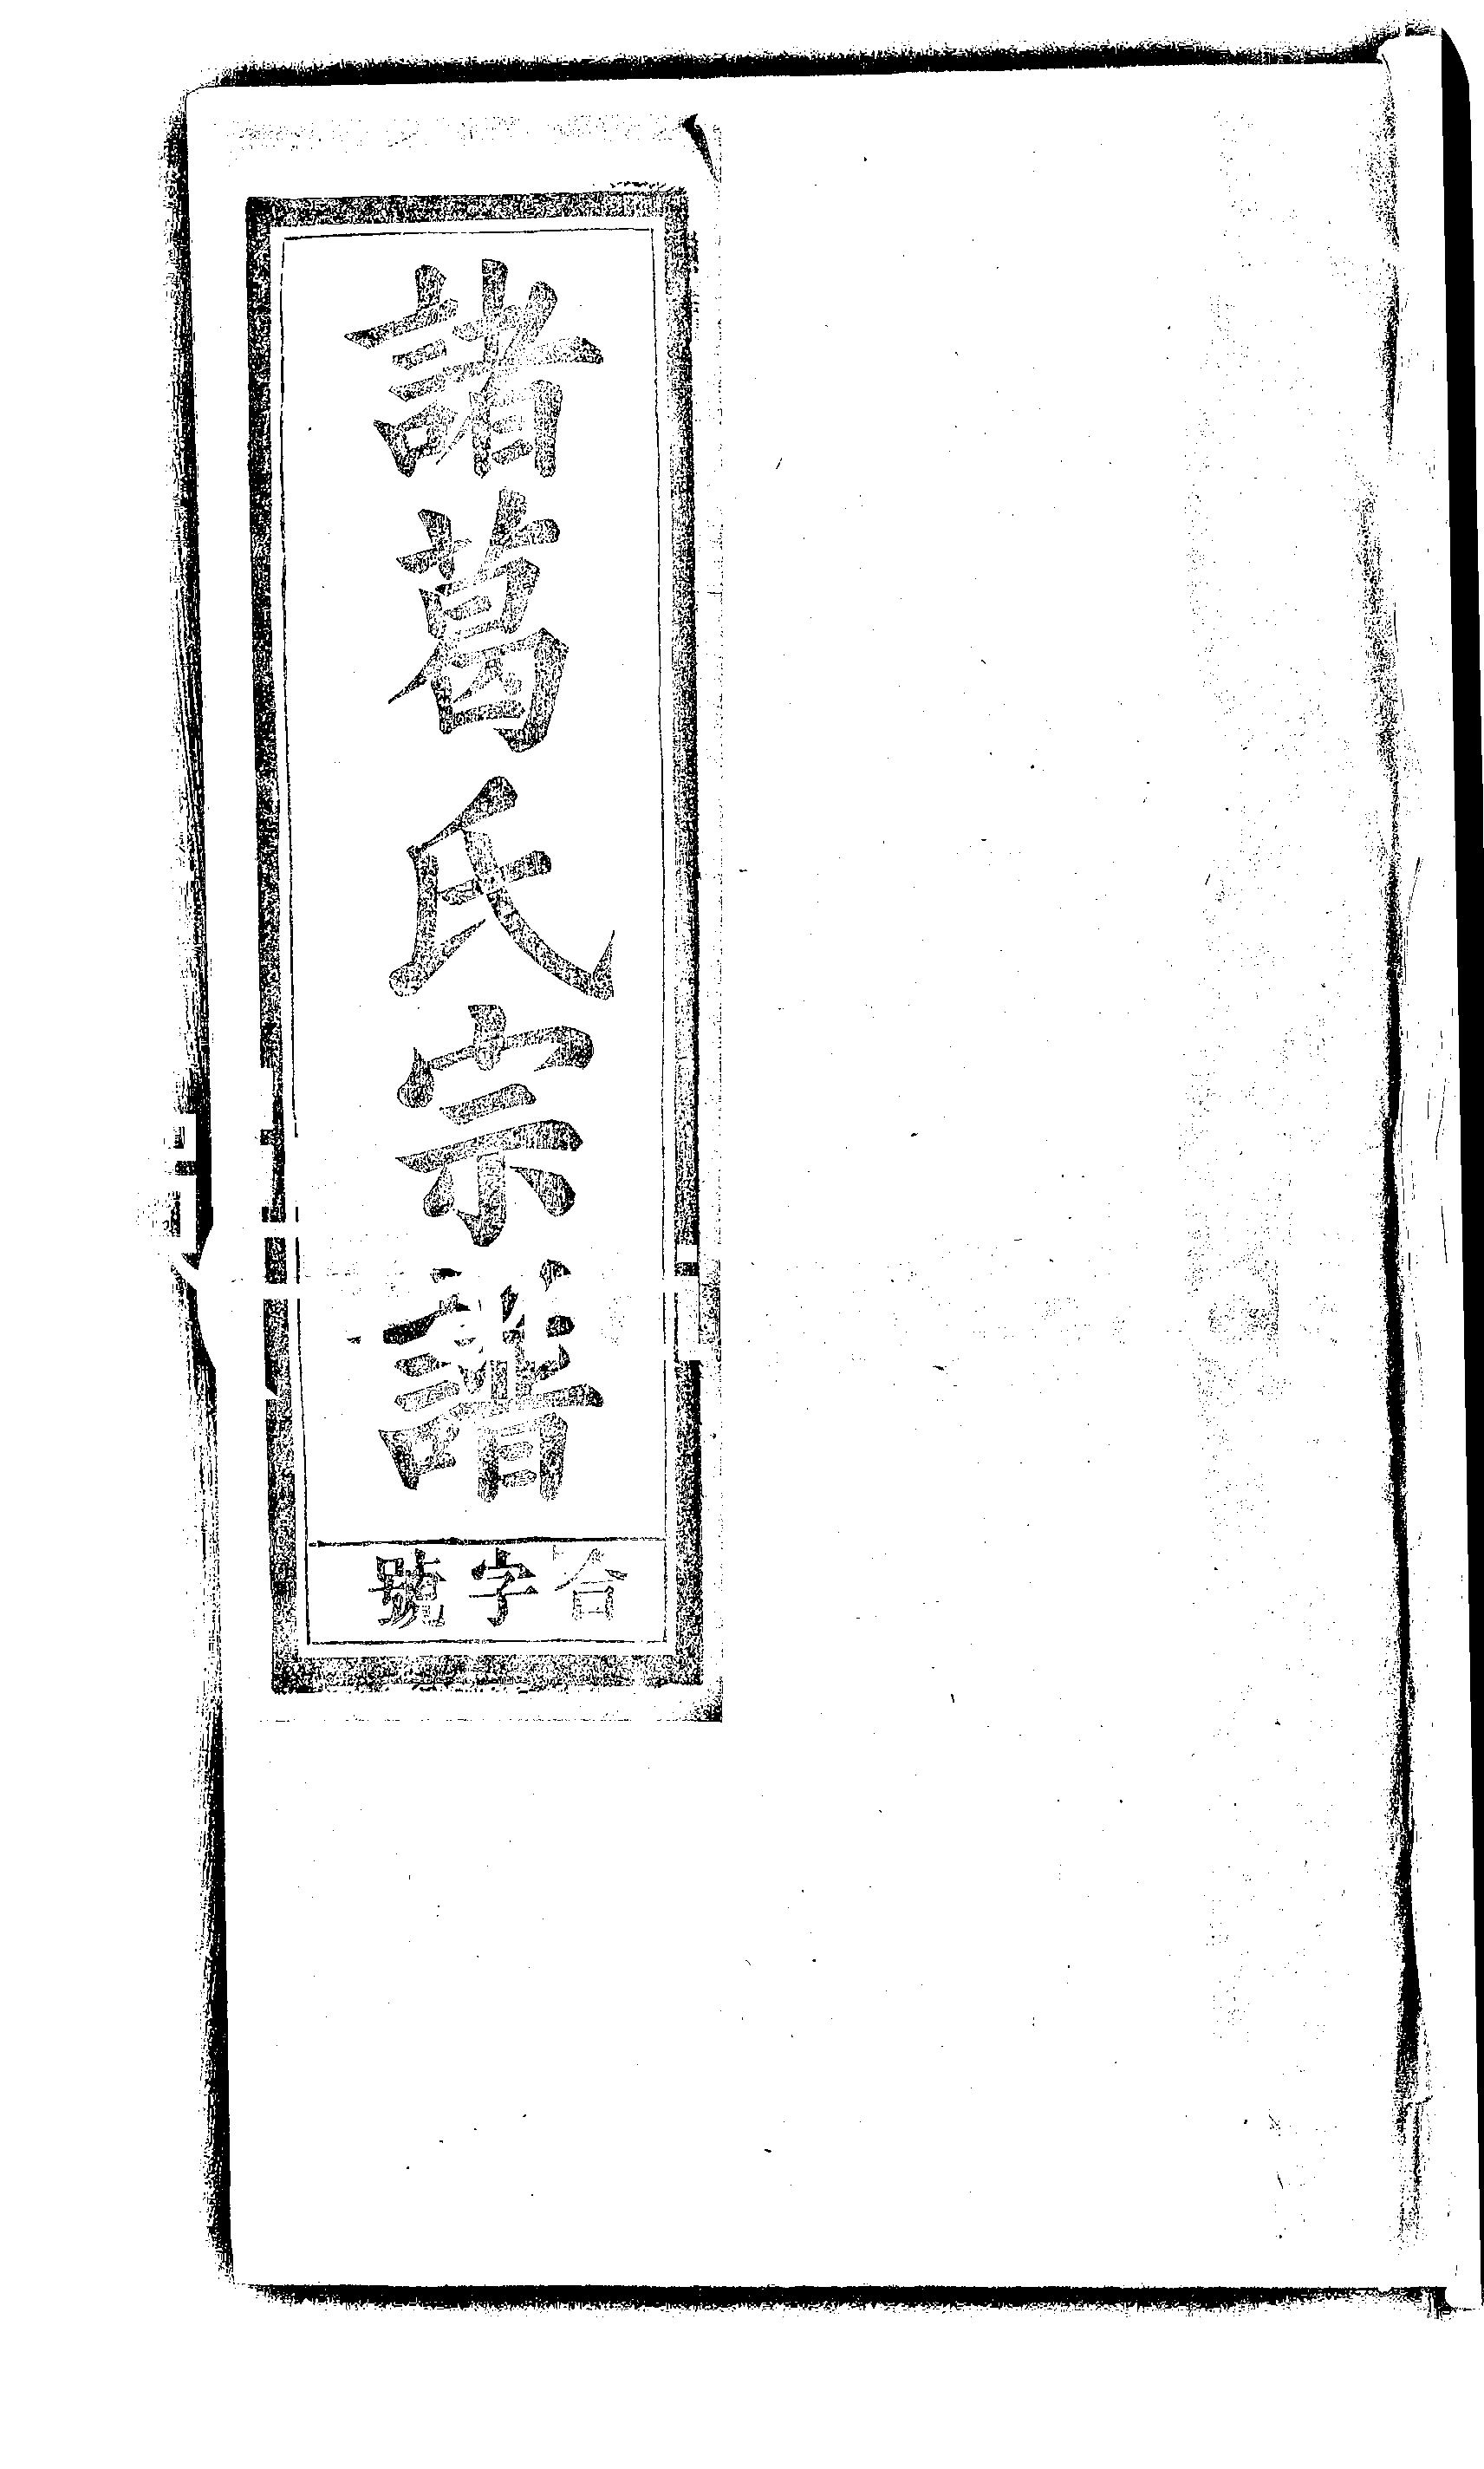 諸葛氏宗譜
合字號